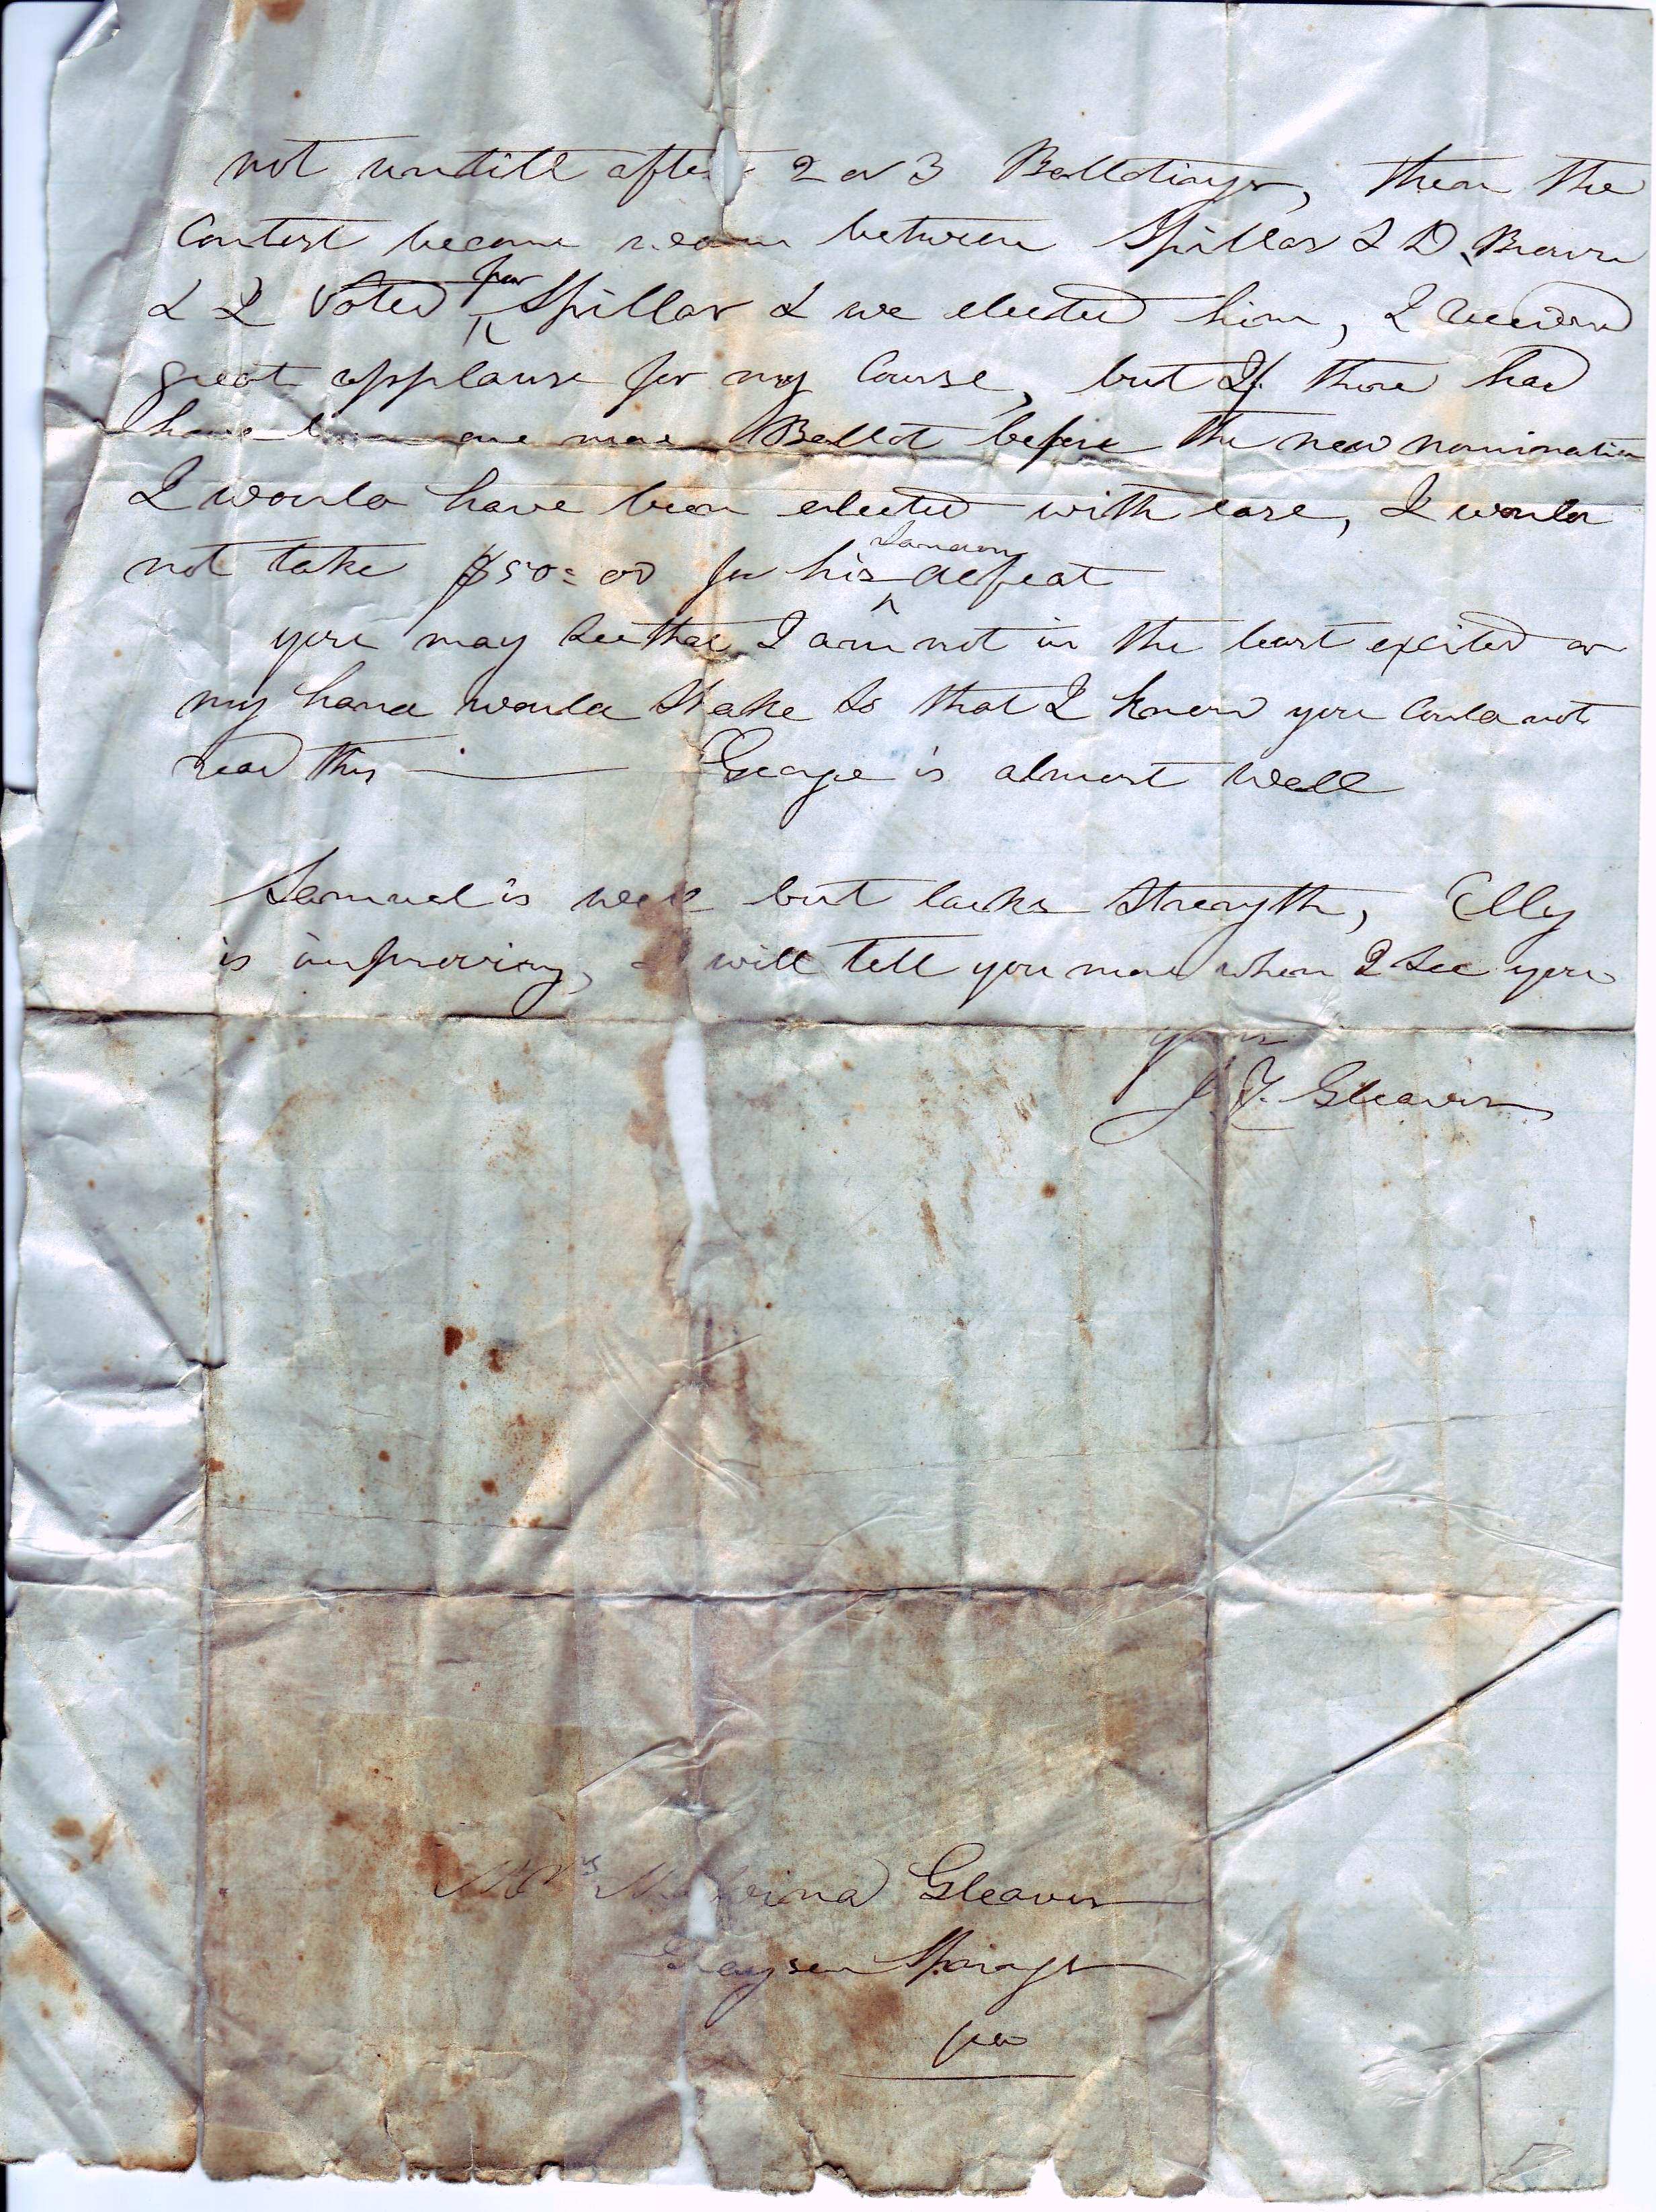 not untill after 2 or 3 Ballotings, then the
Contest become warm between Spillar & D. Brown
& I Voted for Spillar & we elected him, I received
great applause for my Course, but If there had
have been one more Ballot before the new nomination
I would have been elected with ease, I would
not take $50=00 for his defeat
you may see that I am not in the least excited or
my hand would Shake so that I know you Could not
read this — George is almost well
Samuel is well but lacks Strength, Elly
is improving, I will tell you more when I see you
yours
J. T. Gleaves
Mrs Malvina Gleaves
Grayson Springs